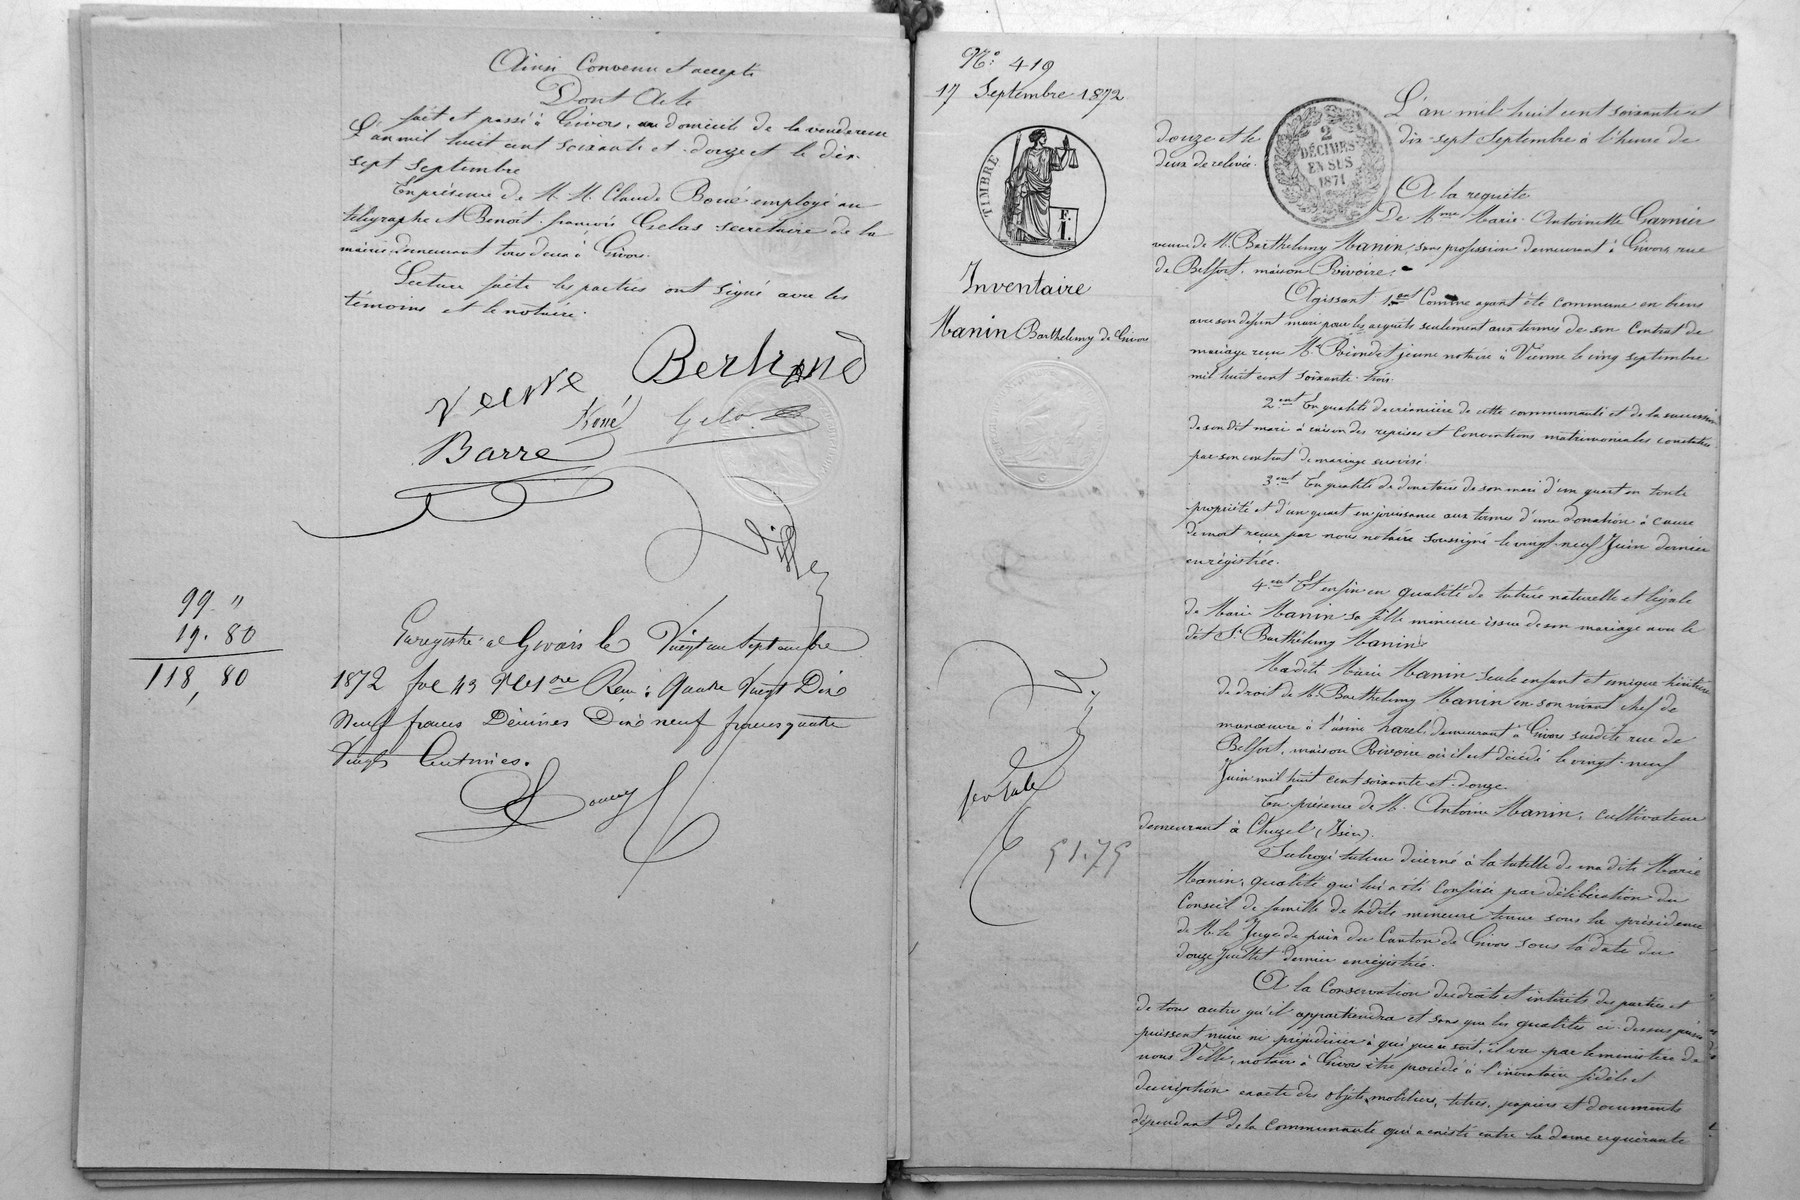 Ainsi Convenu et accepté
Dont Acte
fait et passé à Givors, au domicile de la venderesse
L'an mil huit cent soixante et douze et le dix
sept Septembre
En présence de M. M. Claude Boué employé au
télégraphe et Benoit françois Gelas secrétaire de la
mairie demeurant tous deux à Givors.
Lecture faite les parties ont signé avec les
témoins et le notaire.
Veuve Bertrand
Boué Gelas
Barre
99 "
19. 80
118, 80
Enregistré à Givors le Vingt un Septembre
1872 fol 43 Reçu : Quatre Vingt Dix
Neuf francs Décimes Dix neuf francs quatre
Vingts Centimes.
No: 419
17 Septembre 1872
TIMBRE
F.
I.
Inventaire
Manin Barthelemy de Givors
51.75
2
DÉCIMES
EN SUS
1871
L'an mil huit cent soixante et
douze et le dix-sept Septembre à l'heure de
deux de relevée.
A la requête
De Mme Marie Antoinette Garnier
veuve de M. Barthelemy Manin, sans profession demeurant à Givors rue
de Belfort, maison Rivoire,
Agissant 1ent Comme ayant été commune en biens
avec son défunt mari pour les acquêts seulement aux termes de son Contrat de
mariage reçu Me Riondet jeune notaire à Vienne le cinq septembre
mil huit cent soixante trois.
2ent En qualité de créancière de cette communauté et de la succession
de son dit mari à raison des reprises et Conventions matrimoniales constatées
par son contrat de mariage susvisé.
3ent En qualité de donataire de son mari d'un quart en toute
propriété et d'un quart en jouissance aux termes d'une donation à cause
de mort reçue par nous notaire soussigné le vingt-neuf Juin dernier
enrégistrée.
4ent Et enfin en qualité de tutrice naturelle et légale
de Marie Manin sa fille mineure issue de son mariage avec le
dit Sr Barthélemy Manin.
Ladite Marie Manin seule enfant et unique héritière
de droit de M. Barthelemy Manin en son vivant chef de
manœuvre à l'usine hazel, demeurant à Givors susdite rue de
Belfort, maison Rivoire où il est décédé le vingt-neuf
Juin mil huit cent soixante et douze.
En présence de M. Antoine Manin, cultivateur
demeurant à Chuzel (Isère).
Subrogé tuteur décerné à la tutelle de ma dite Marie
Manin, qualité qui lui a été Conférée par délibération du
Conseil de famille de ladite mineure tenue sous la présidence
de M. le Juge de paix du Canton de Givors sous la date du
douze Juillet dernier enrégistrée.
A la Conservation des droits et intérêts des parties et
de tous autres qu'il appartiendra et sans que les qualités ci-dessus prises
puissent nuire ni préjudicier à qui que ce soit, il va par le ministère de
nous Ville, notaire à Givors être procédé à l'inventaire fidèle et
description exacte des objets mobiliers, titres, papiers et documents
dépendant de la Communauté qui a existé entre la dame requérante